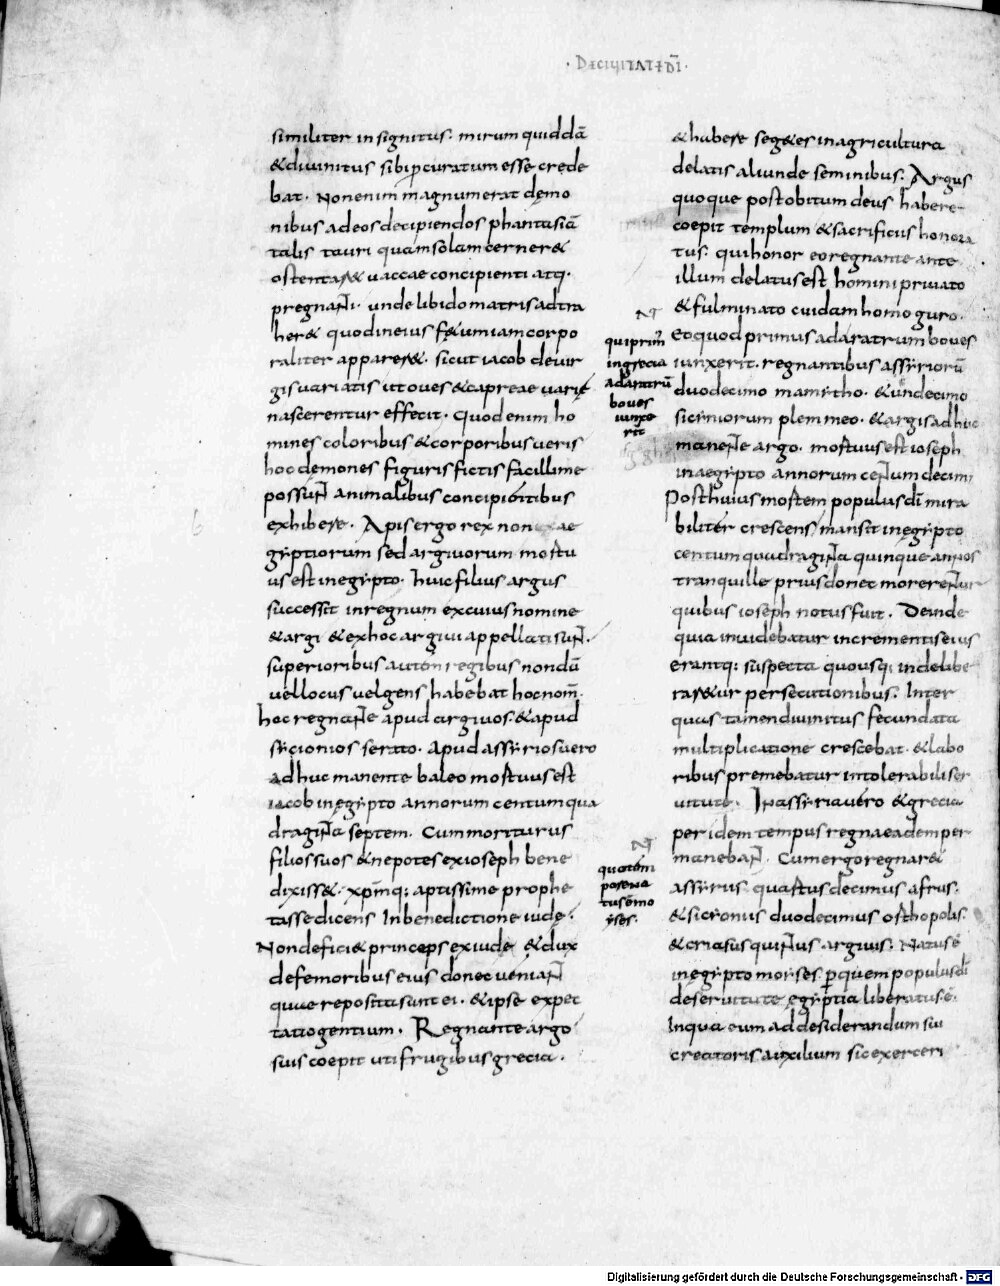 · DECIUITATEDĪ ·
similiter insignitus. mirum quiddā
&diuinitus sibi ꝓcuratum esse crede
bat. Nonenim magnum erat dęmo
nibus adeos decipiendos phantasiā
talis tauri quam solam cerner&
ostentar& uaccae concipienti atq·
pregnanti. unde libido matris adtra
her& quodineius f&um iam corpo
raliter apparer&. sicut iacob deuir
gisuariatis ut oues &capreae uarię
nascerentur effecit. Quodenim ho
mines coloribus &corporibus ueris
hoc demones figuris fictis facillime
possunt animalibus concipientibus
exhibere. Apis ergo rex non ae
gyptiorum sed argiuorum mortu
us est inegypto. huic filius argus
successit inregnum excuius nomine
&argi &exhoc argiui appellati sunt.
superioribus autem regibus nondū
uel locus uel gens habebat hoc nom̄.
hoc regnante apud argiuos. &apud
sycionios serato. Apud assyrios uero
adhuc manente baleo mortuus est
iacob inęgypto annorum centum qua
draginta septem. Cum moriturus
filios suos &nepotes exioseph bene
dixiss&. xp̄mq; aptissime prophe
tasse dicens In benedictione iudę.
Non defici& princeps exiudę &dux
defemoribus eius donec ueniant
quae reposita sunt ei. &ipse expec
tatio gentium. Regnante argo
suis coepit uti frugibus grecia.
&habere seg&es in agricultura
delatis aliunde seminibus. Argus
quoque post obitum deus habere
coepit templum &sacrificiis honora
tus. qui honor eo regnante ante
illum delatus est homini priuato
&fulminato cuidam homoguro.
Eo quod primus ad aratrum boues
iunxerit. regnantibus assyriorū
duodecimo mamytho. &undecimo
sicyniorum plemmeo. &argis adhuc
manente argo. mortuus est ioseph
in aegypto annorum centum decim
Post huius mortem populus dī mira
biliter crescens mansit inegypto
centum quadraginta quinque annos
tranquille prius donec morerentur
quibus ioseph notus fuit. Deinde
quia inuidebatur incrementis eius
erantq; suspecta quousq; inde libe
rar&ur persecutionibus. Inter
quas tamen diuinitus fecundata
multiplicatione crescebat. &labo
ribus premebatur intolerabili ser
uitute. In assyria uero &grecia
per idem tempus regna eadem per
manebant. Cum ergo regnar&
assyrus. quartus decimus afrus.
&sicyonus duodecimus orthopolis.
&criasus quintus argiuis. Natus ē
inegypto moyses. ꝑquem populus dī
de seruitute egyptia liberatus. ē.
In qua eum ad desiderandum sui
creatoris auxilium sic exerceri
NT
qui prim̄
ingrecia
ad aratrū
boues
iunxe
rit
NT
quo tem
pore na
tus ē mo
yses.
Digitalisierung gefördert durch die Deutsche Forschungsgemeinschaft - DFG